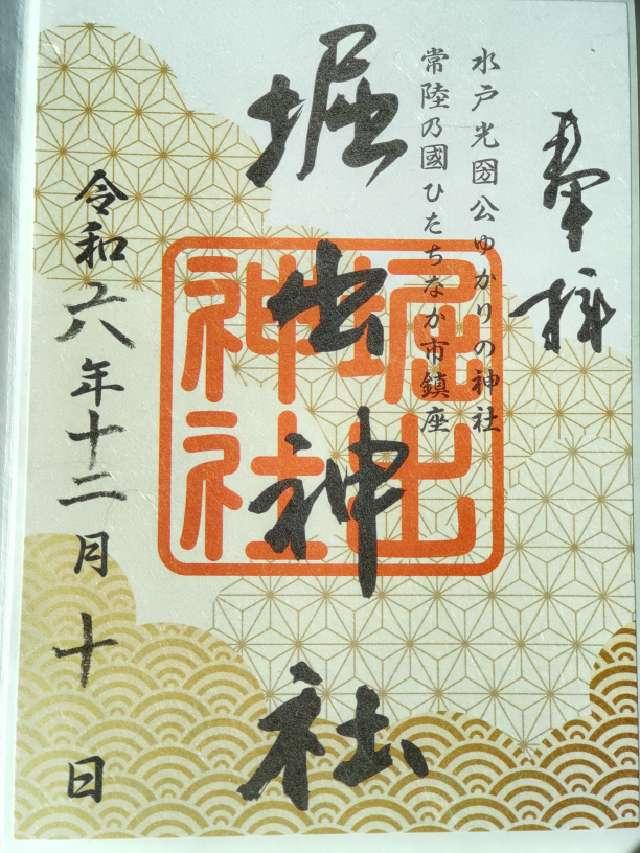 奉拝
水戸光圀公ゆかりの神社
常陸乃國ひたちなか市鎮座
堀出神社
堀出
神社
令和六年十二月十日